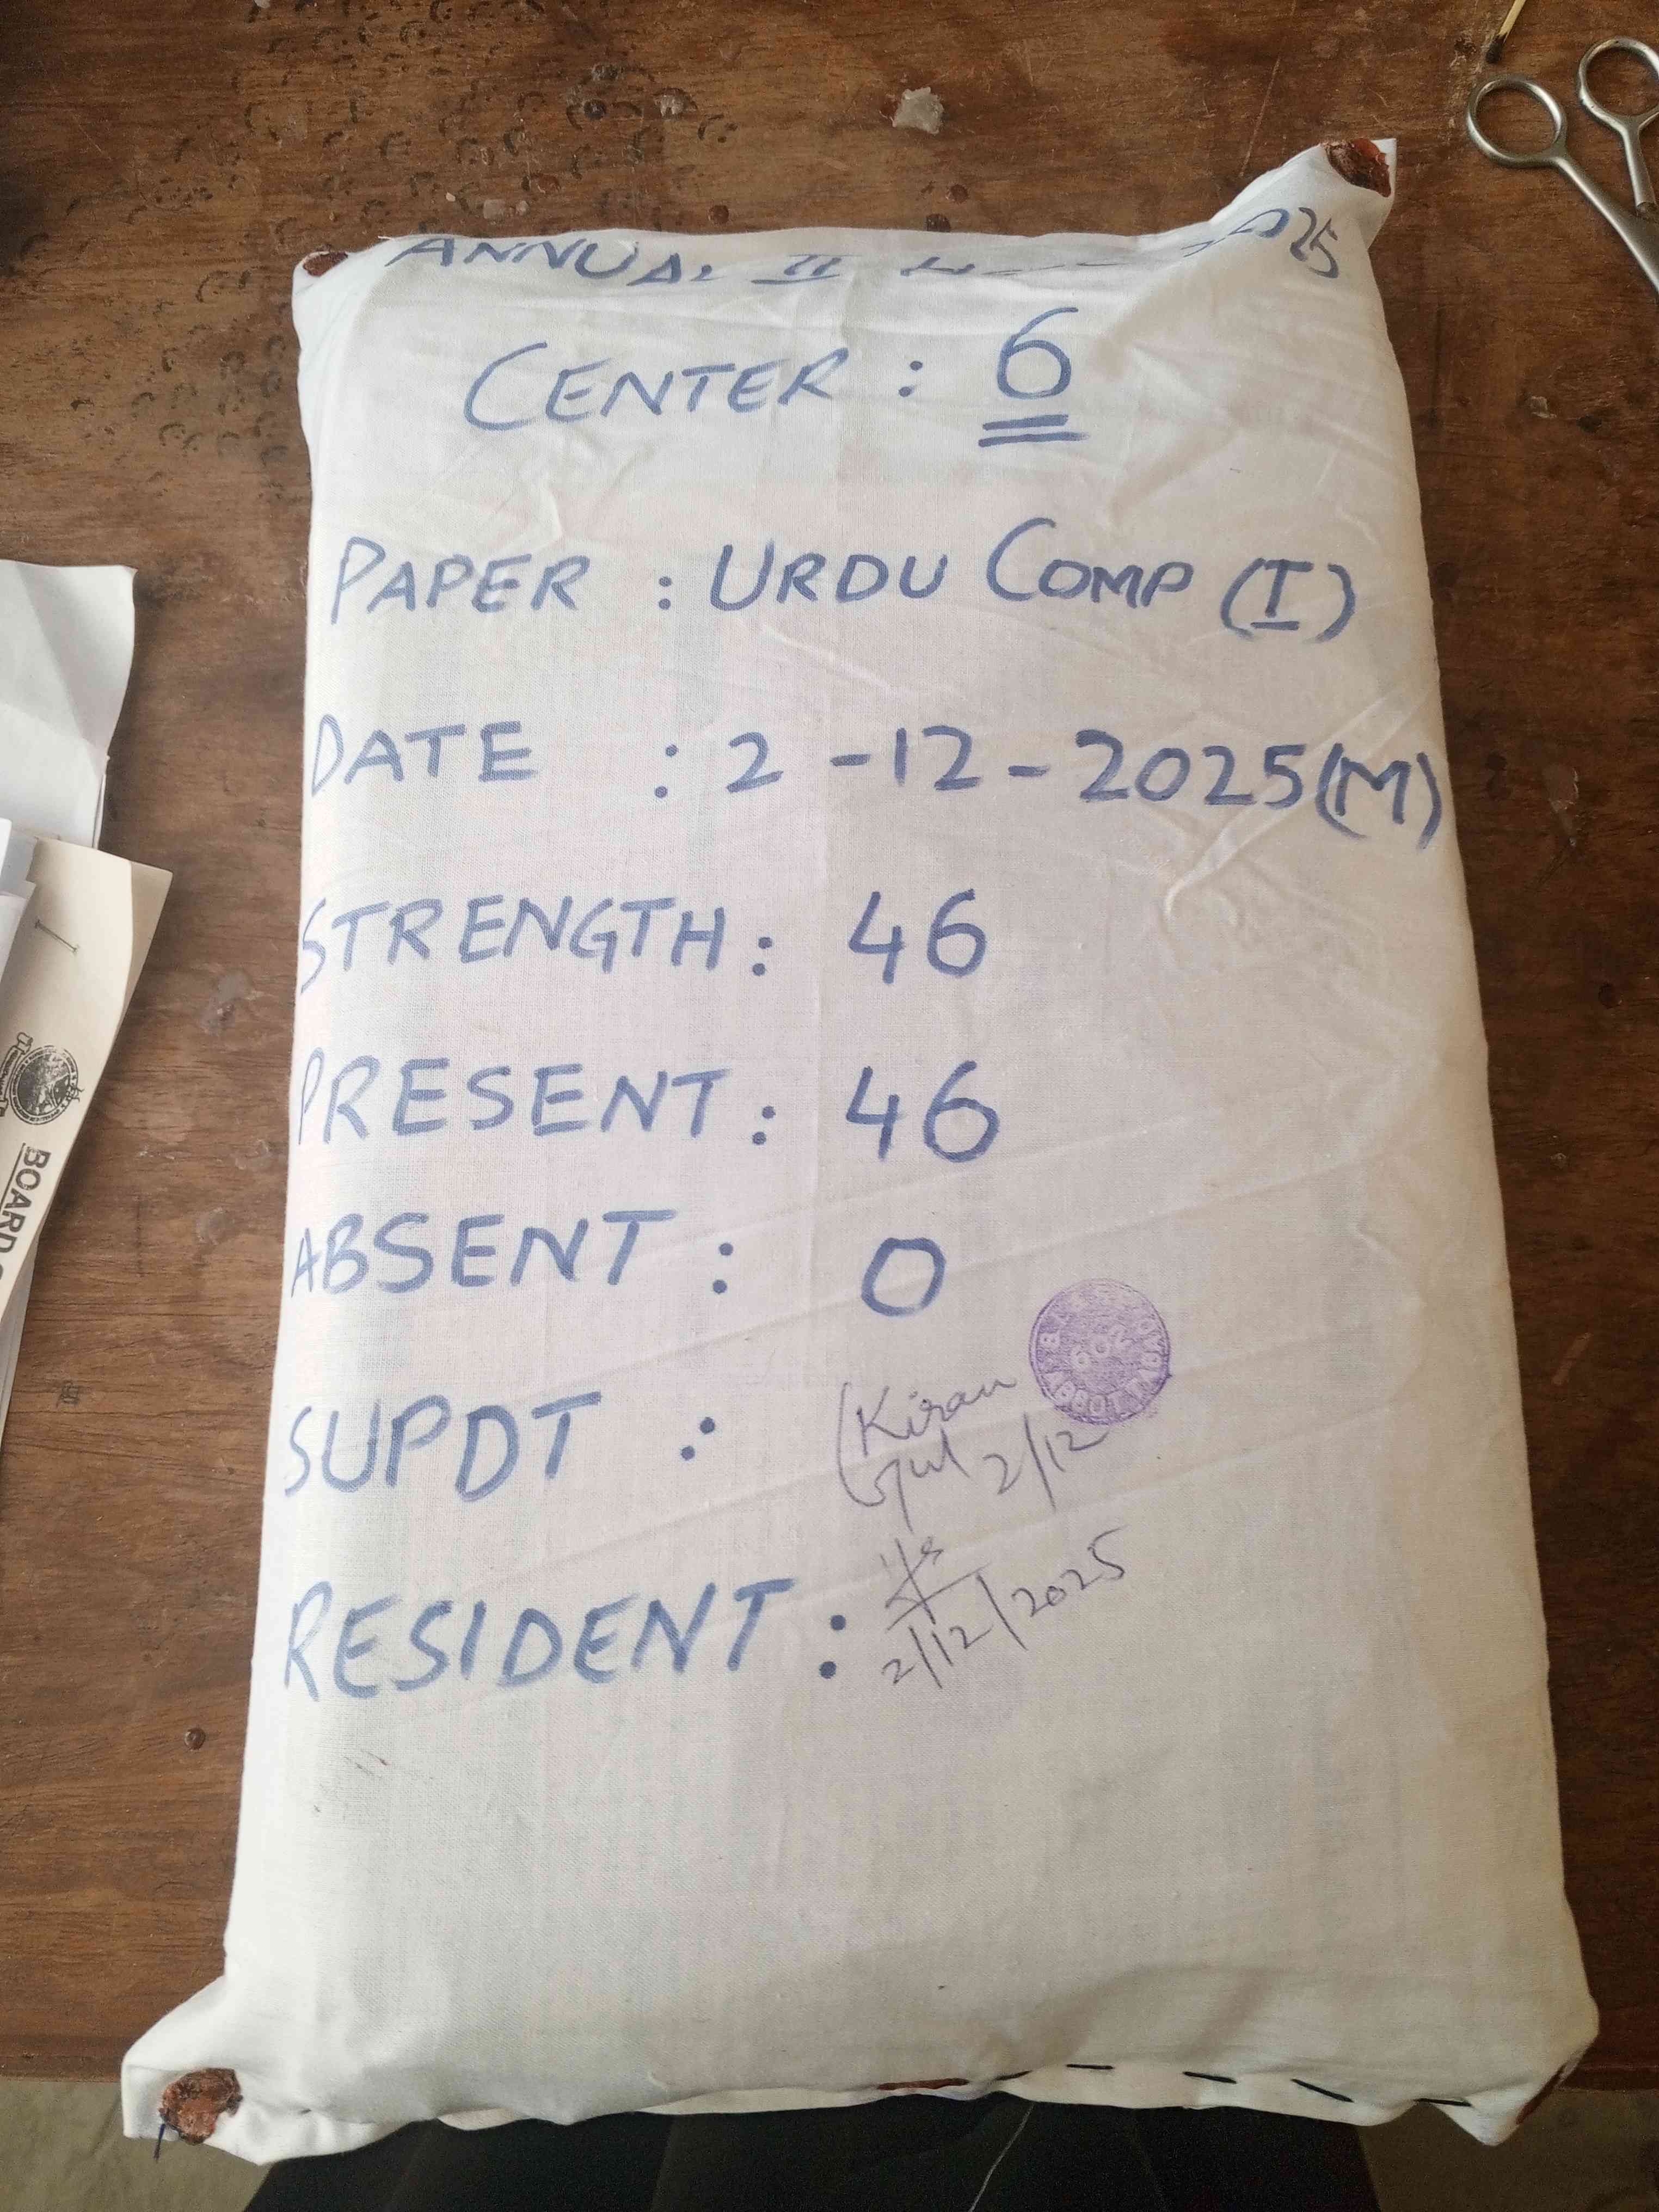 ANNUAL II
CENTER : 6
PAPER : URDU COMP (I)
DATE : 2-12-2025(M)
STRENGTH: 46
PRESENT: 46
ABSENT : 0
SUPDT : (Kiran
Gul 2/12
RESIDENT :
2/12/2025
602
BOARD